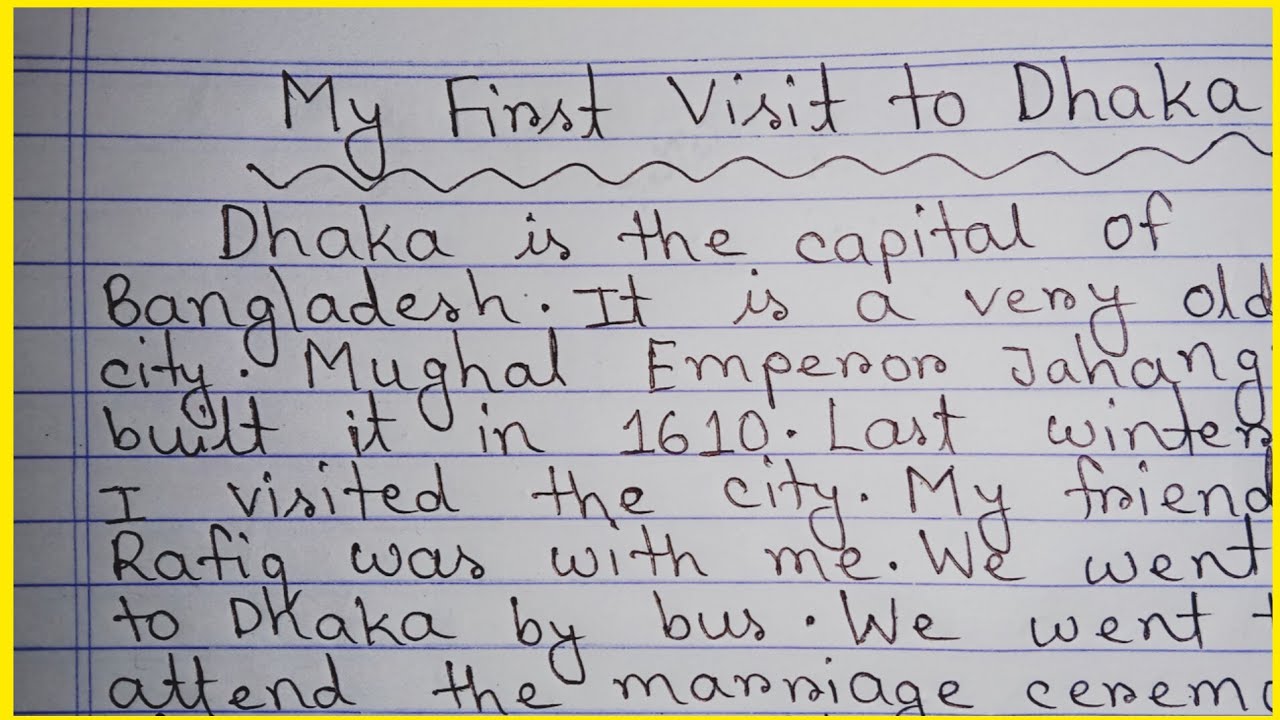 My First Visit to Dhaka
Dhaka is the capital of
Bangladesh. It is a very old
city. Mughal Emperor Jahang
built it in 1610. Last winter
I visited the city. My friend
Rafiq was with me. We went
to Dhaka by bus. We went t
attend the marriage ceremo